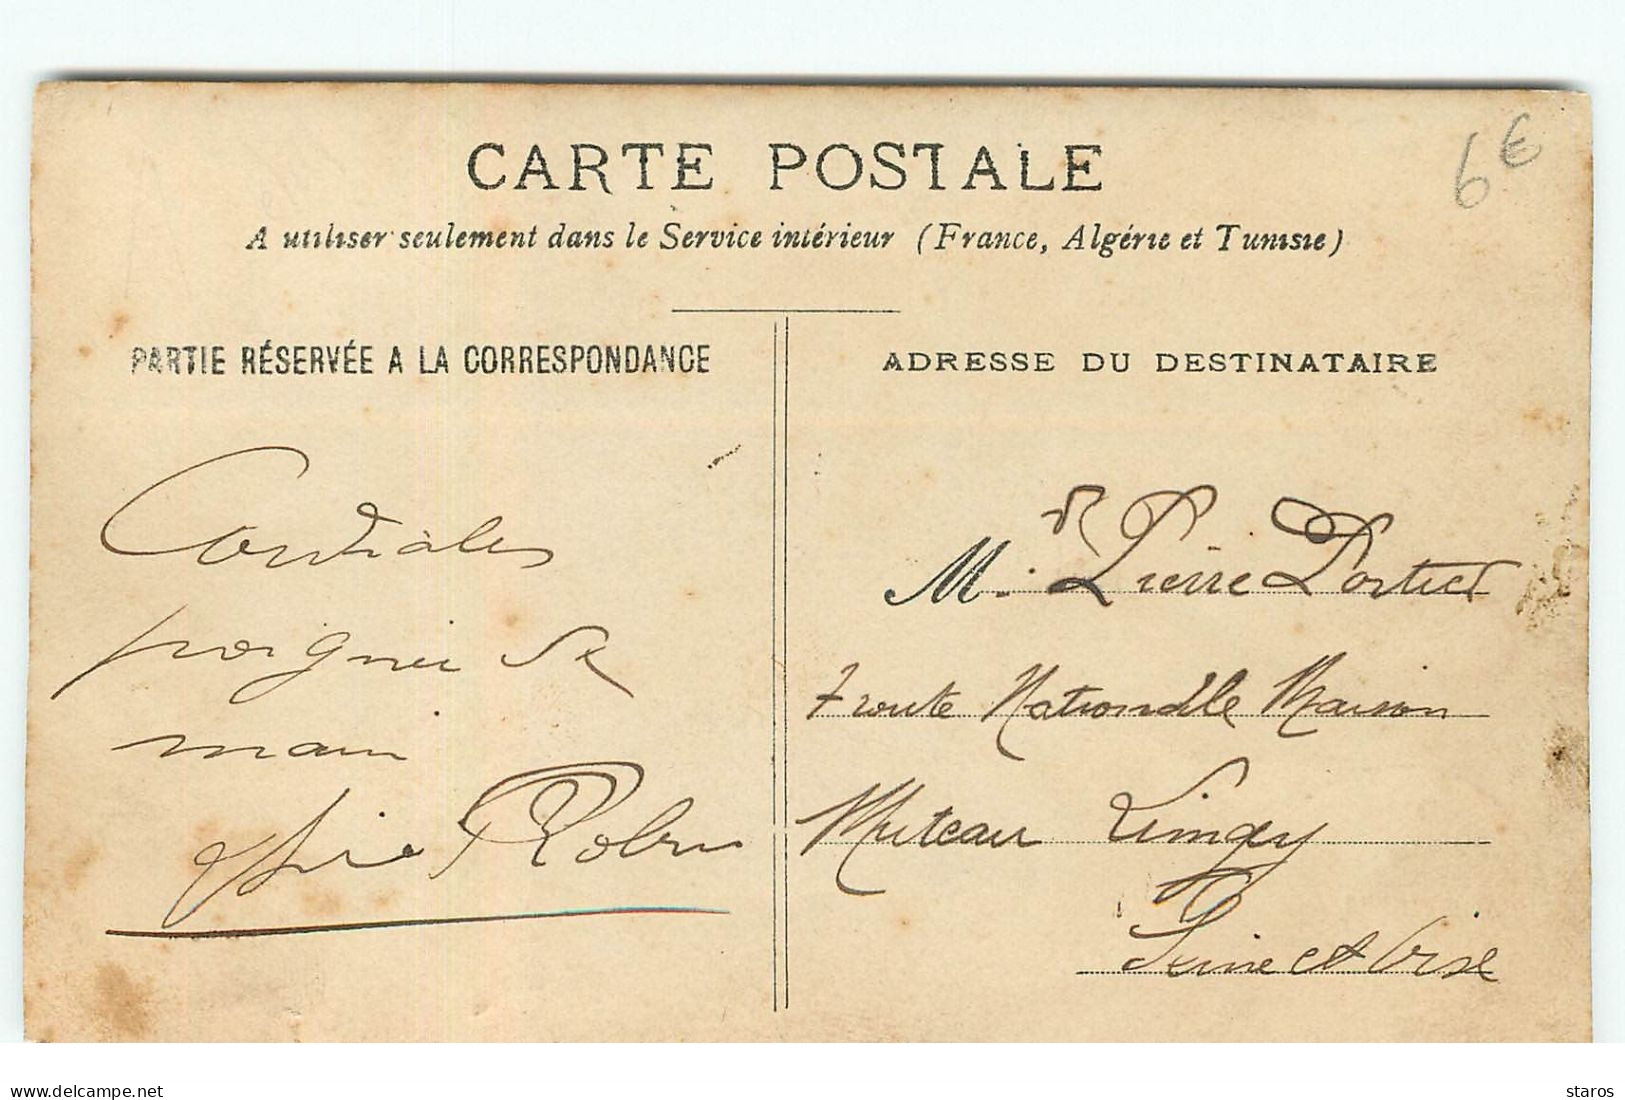 6€
CARTE POSTALE
A utiliser seulement dans le Service intérieur (France, Algérie et Tunisie)
PARTIE RÉSERVÉE A LA CORRESPONDANCE
ADRESSE DU DESTINATAIRE
Cordiales
poignée de
main
Robin
M.r Pierre Portier
7 route Nationale Maison
Muteau Limay
Seine et Oise
www.delcampe.net
staros